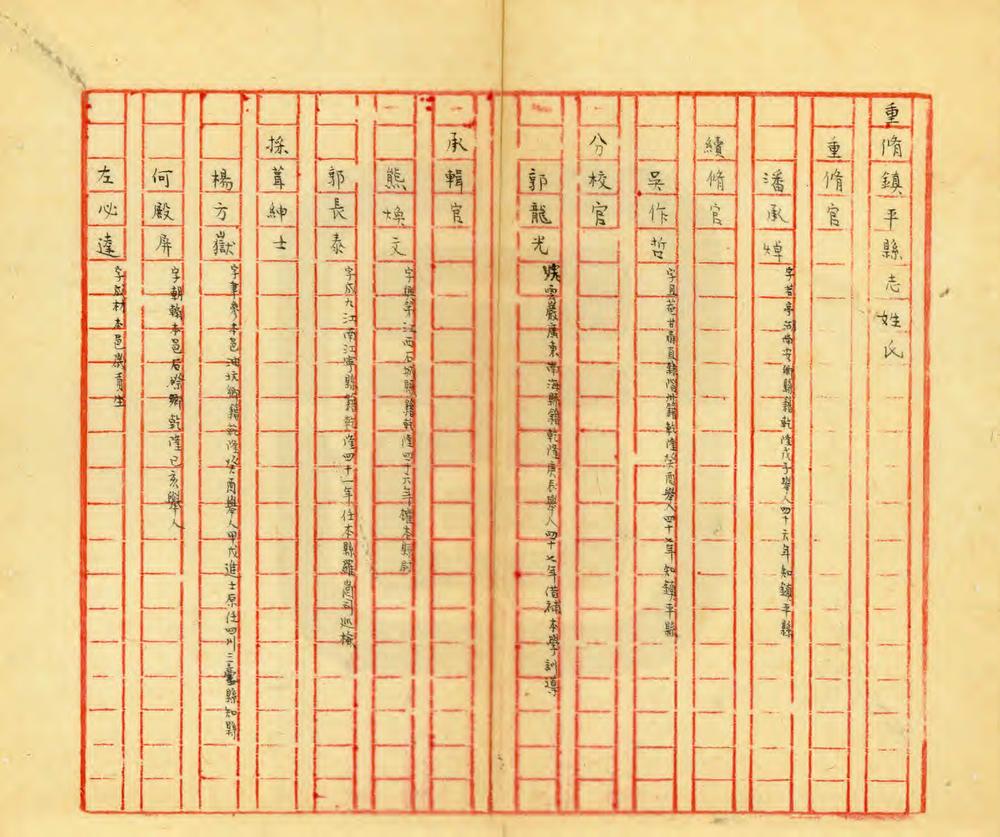 重脩鎮平縣志姓氏
重脩官
潘承焯 字 亭河南 鄉縣籍乾隆戊子舉人四十六年知鎮平縣
續脩官
吳作哲 字 甘 縣 籍乾隆癸酉舉人四十七年知鎮平縣
分校官
郭龍光 號雲巖廣東南海縣籍乾隆庚辰舉人四十七年借補本學訓導
承輯官
熊焕文 字 江西石城縣籍乾隆四十六年 本縣尉
郭長泰 字成九江南江寧縣籍乾隆四十一年任本縣羅崗司巡檢
採葺紳士
楊方嶽 字聿參本邑油坑鄉籍乾隆癸酉舉人甲戌進士原任四川三臺縣知縣
何殿屏 字朝翰本邑石 鄉乾隆己亥舉人
左必達 字成材本邑歲貢生